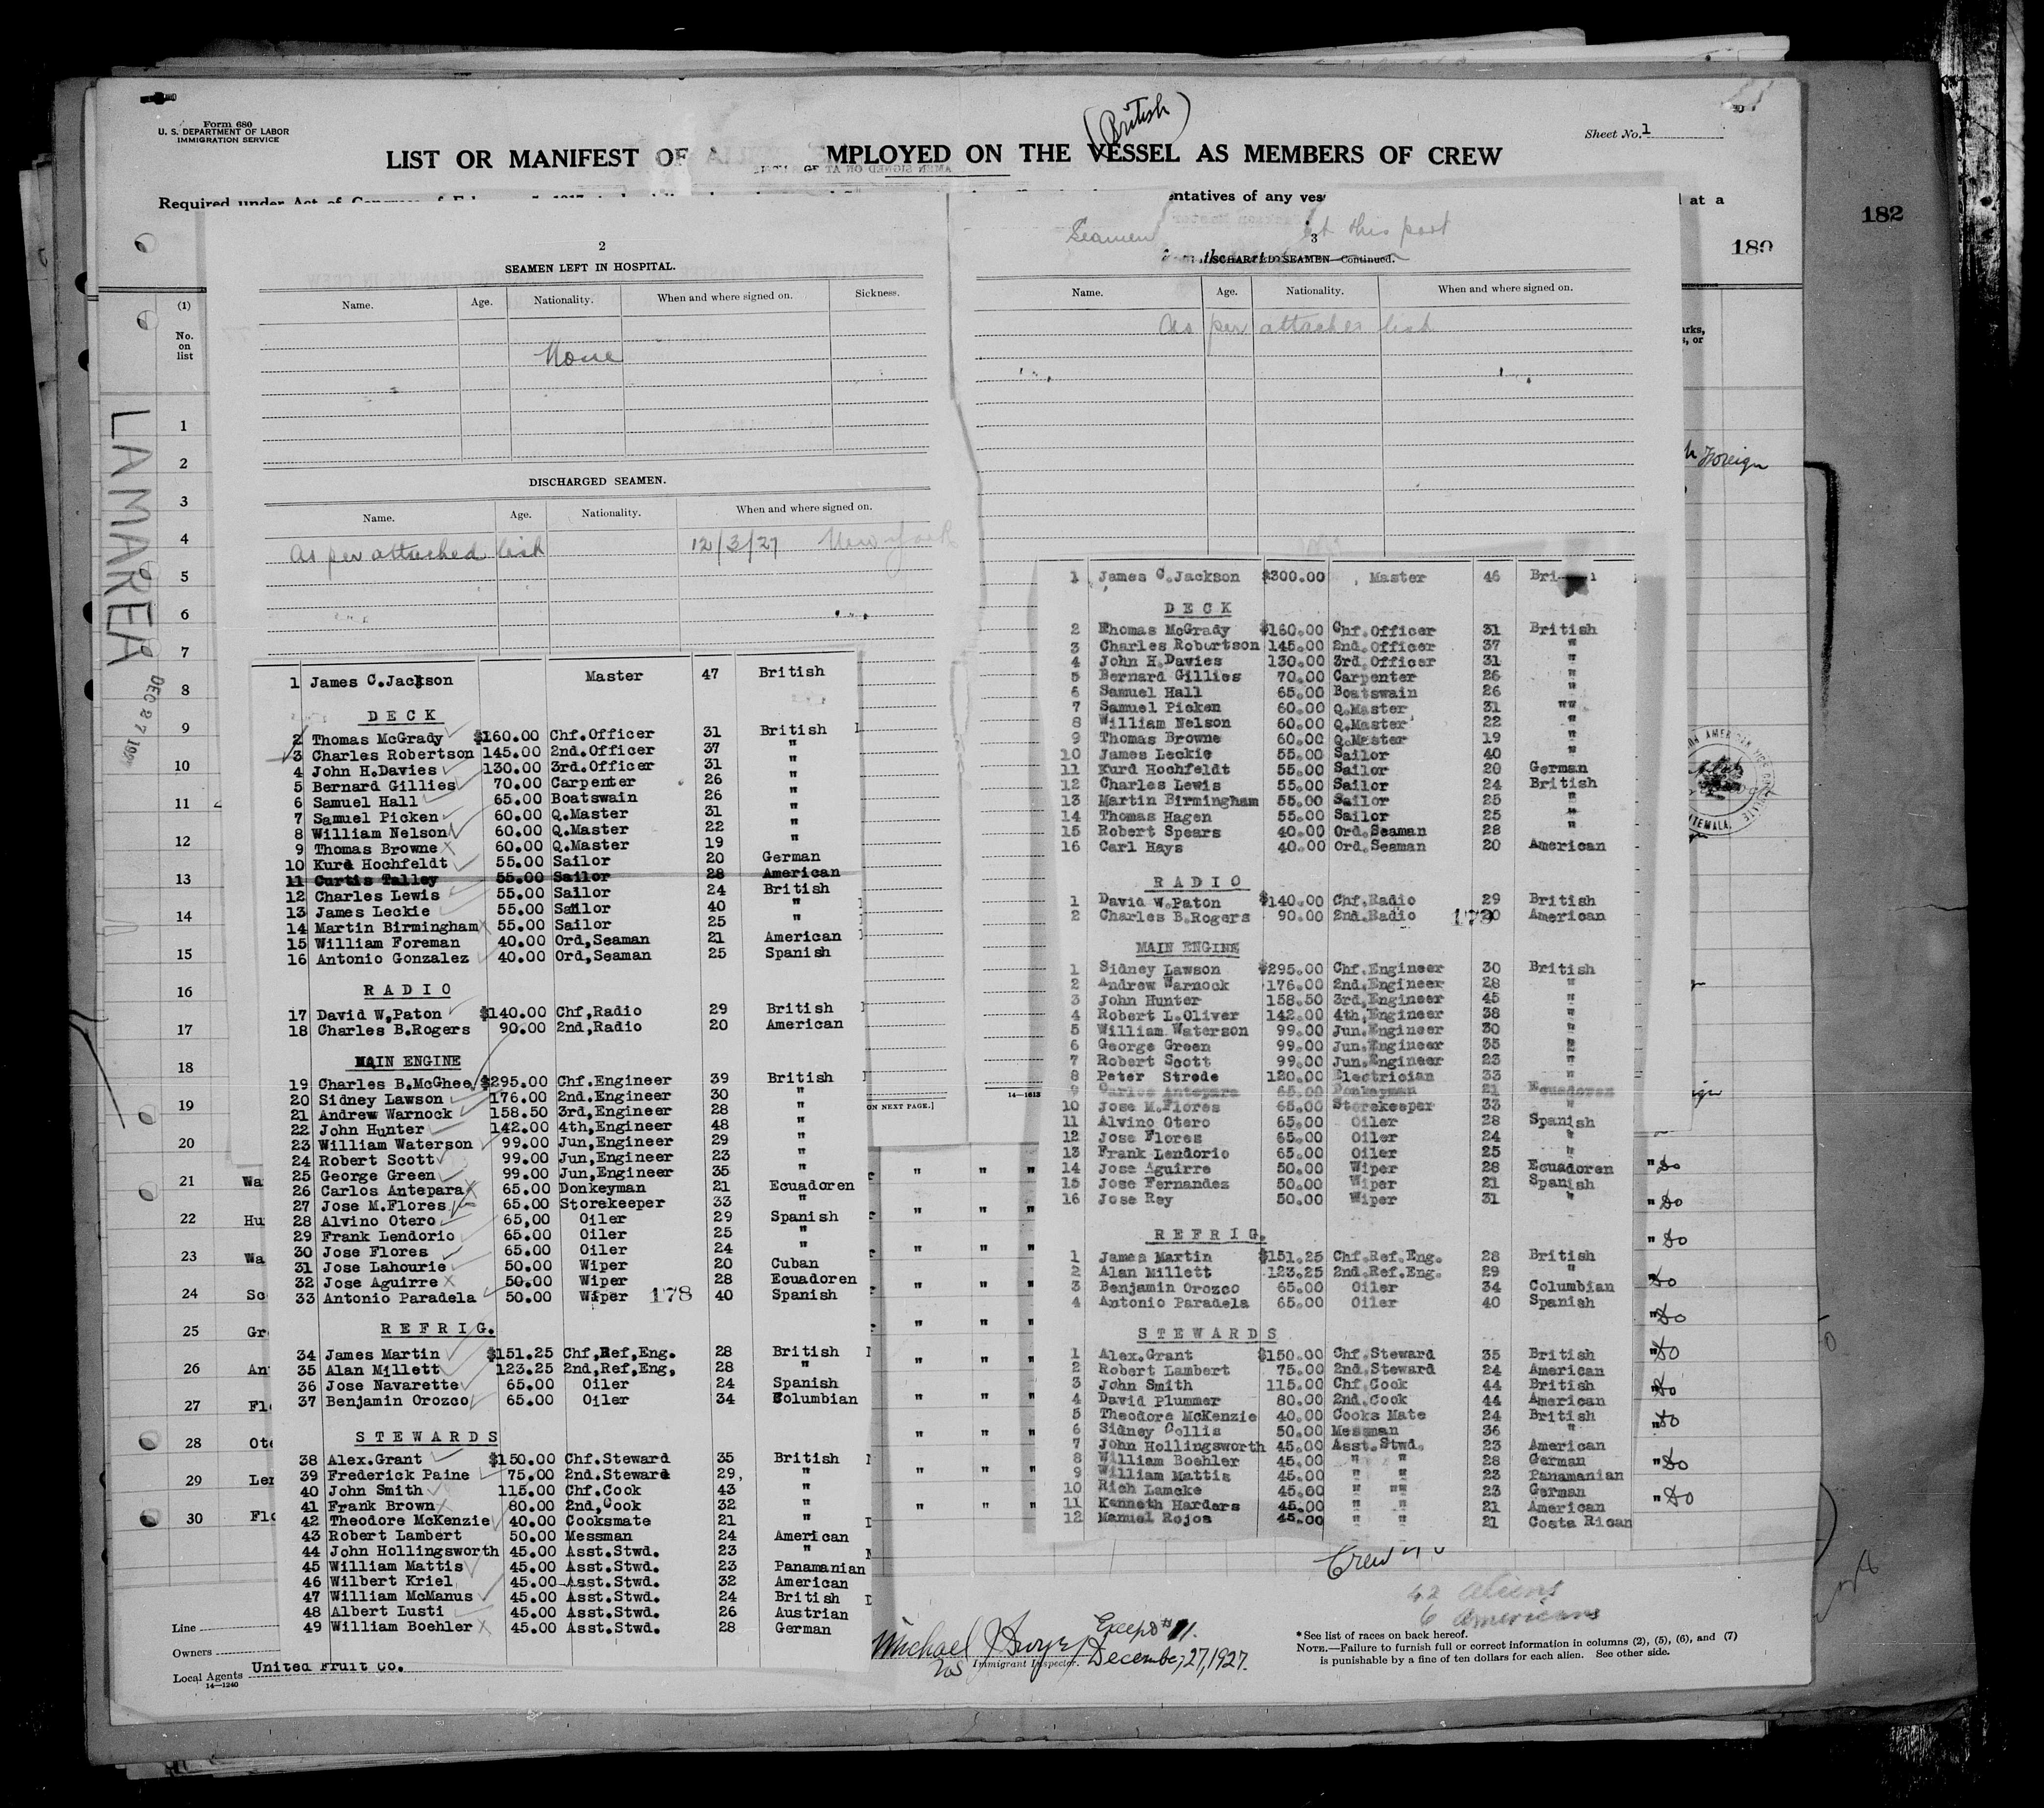 Form 680
U. S. DEPARTMENT OF LABOR
IMMIGRATION SERVICE
(British)
Sheet No. 1
LIST OR MANIFEST OF EMPLOYED ON THE VESSEL AS MEMBERS OF CREW
Required under Act of Congress of
entatives of any ves
at a
182
180
(1)
No.
on
list
LAMAREA
DEC 27 192
1
2
3
4
5
6
7
8
9
10
11
12
13
14
15
16
17
18
19
20
21
22
23
24
25
26
27
28
29
30
2
SEAMEN LEFT IN HOSPITAL.
Name. Age. Nationality. When and where signed on. Sickness.
None
DISCHARGED SEAMEN.
Name. Age. Nationality. When and where signed on.
As per attached list 12/3/27 New York
1 James C.Jackson Master 47 British
DECK
2 Thomas McGrady $160.00 Chf.Officer 31 British
3 Charles Robertson 145.00 2nd.Officer 37 "
4 John H.Davies 130.00 3rd.Officer 31 "
5 Bernard Gillies 70.00 Carpenter 26 "
6 Samuel Hall 65.00 Boatswain 26 "
7 Samuel Picken 60.00 Q.Master 31 "
8 William Nelson 60.00 Q.Master 22 "
9 Thomas Browne 60.00 Q.Master 19 "
10 Kurd Hochfeldt 55.00 Sailor 20 German
11 Curtis Talley 55.00 Sailor 28 American
12 Charles Lewis 55.00 Sailor 24 British
13 James Leckie 55.00 Sailor 40 "
14 Martin Birmingham 55.00 Sailor 25 "
15 William Foreman 40.00 Ord,Seaman 21 American
16 Antonio Gonzalez 40.00 Ord,Seaman 25 Spanish
RADIO
17 David W.Paton $140.00 Chf,Radio 29 British
18 Charles B.Rogers 90.00 2nd,Radio 20 American
MAIN ENGINE
19 Charles B.McGhee $295.00 Chf.Engineer 39 British
20 Sidney Lawson 176.00 2nd.Engineer 30 "
21 Andrew Warnock 158.50 3rd,Engineer 28 "
22 John Hunter 142.00 4th,Engineer 48 "
23 William Waterson 99.00 Jun,Engineer 29 "
24 Robert Scott 99.00 Jun,Engineer 23 "
25 George Green 99.00 Jun,Engineer 35 "
26 Carlos Antepara 65.00 Donkeyman 21 Ecuadoren
27 Jose M.Flores 65.00 Storekeeper 33 "
28 Alvino Otero 65,00 Oiler 29 Spanish
29 Frank Lendorio 65.00 Oiler 25 "
30 Jose Flores 65.00 Oiler 24 "
31 Jose Lahourie 50.00 Wiper 20 Cuban
32 Jose Aguirre 50.00 Wiper 28 Ecuadoren
33 Antonio Paradela 50.00 Wiper 178 40 Spanish
REFRIG.
34 James Martin $151.25 Chf,Ref,Eng. 28 British
35 Alan Millett 123.25 2nd,Ref,Eng, 28 "
36 Jose Navarette 65.00 Oiler 24 Spanish
37 Benjamin Orozco 65.00 Oiler 34 Columbian
STEWARDS
38 Alex.Grant $150.00 Chf.Steward 35 British
39 Frederick Paine 75.00 2nd.Steward 29, "
40 John Smith 115.00 Chf.Cook 43 "
41 Frank Brown 80.00 2nd,Cook 32 "
42 Theodore McKenzie 40.00 Cooksmate 21 "
43 Robert Lambert 50.00 Messman 24 American
44 John Hollingsworth 45.00 Asst.Stwd. 23 "
45 William Mattis 45.00 Asst.Stwd. 23 Panamanian
46 Wilbert Kriel 45.00 Asst.Stwd. 32 American
47 William McManus 45.00 Asst.Stwd. 24 British
48 Albert Lusti 45.00 Asst.Stwd. 26 Austrian
49 William Boehler 45.00 Asst.Stwd. 28 German
3
Seamen at this port
DISCHARGED SEAMEN—Continued.
Name. Age. Nationality. When and where signed on.
As per attached list
1 James C.Jackson $300.00 Master 46
DECK
2 Thomas McGrady $160.00 Chf.Officer 31 British
3 Charles Robertson 145.00 2nd.Officer 37 "
4 John H.Davies 130.00 3rd.Officer 31 "
5 Bernard Gillies 70.00 Carpenter 26 "
6 Samuel Hall 65.00 Boatswain 26 "
7 Samuel Picken 60.00 Q.Master 31 ""
8 William Nelson 60.00 Q.Master 22 "
9 Thomas Browne 60.00 Q.Master 19 "
10 James Leckie 55.00 Sailor 40 "
11 Kurd Hochfeldt 55.00 Sailor 20 German
12 Charles Lewis 55.00 Sailor 24 British
13 Martin Birmingham 55.00 Sailor 25 "
14 Thomas Hagen 55.00 Sailor 25 "
15 Robert Spears 40.00 Ord.Seaman 28 "
16 Carl Hays 40.00 Ord.Seaman 20 American
RADIO
1 David W.Paton $140.00 Chf.Radio 29 British
2 Charles B.Rogers 90.00 2nd.Radio 20 American
MAIN ENGINE
1 Sidney Lawson $295.00 Chf.Engineer 30 British
2 Andrew Warnock 176.00 2nd.Engineer 28 "
3 John Hunter 158.50 3rd,Engineer 45 "
4 Robert L.Oliver 142.00 4th,Engineer 38 "
5 William Waterson 99.00 Jun.Engineer 30 "
6 George Green 99.00 Jun.Engineer 35 "
7 Robert Scott 99.00 Jun.Engineer 23 "
8 Peter Strode 120.00 Electrician 33 "
9 Carlos Antepara 65.00 Donkeyman 21 Ecuadoren
10 Jose M.Flores 65.00 Storekeeper 33 "
11 Alvino Otero 65.00 Oiler 28 Spanish
12 Jose Flores 65.00 Oiler 24 "
13 Frank Lendorio 65.00 Oiler 25 "
14 Jose Aguirre 50.00 Wiper 28 Ecuadoren
15 Jose Fernandez 50.00 Wiper 21 Spanish
16 Jose Rey 50.00 Wiper 31 "
REFRIG.
1 James Martin $151.25 Chf.Ref.Eng. 28 British
2 Alan Millett 123.25 2nd.Ref.Eng. 29 "
3 Benjamin Orozco 65.00 Oiler 34 Columbian
4 Antonio Paradela 65.00 Oiler 40 Spanish
STEWARDS
1 Alex.Grant $150.00 Chf.Steward 35 British
2 Robert Lambert 75.00 2nd.Steward 24 American
3 John Smith 115.00 Chf.Cook 44 British
4 David Plummer 80.00 2nd.Cook 44 American
5 Theodore McKenzie 40.00 Cooks Mate 24 British
6 Sidney Collis 50.00 Messman 36 "
7 John Hollingsworth 45.00 Asst.Stwd. 23 American
8 William Boehler 45.00 " " 28 German
9 William Mattis 45.00 " " 23 Panamanian
10 Rich Lamcke 45.00 " "" 23 German
11 Kenneth Harders 45.00 " " 21 American
12 Manuel Rojos 45.00 " " 21 Costa Rican
ON NEXT PAGE.]
Foreign
Line
Owners
Local Agents United Fruit Co.
14—1240
Michael
Except # 11.
Immigrant Inspector. December, 27, 1927.
Crew
42 aliens
6 Americans
*See list of races on back hereof.
NOTE.—Failure to furnish full or correct information in columns (2), (5), (6), and (7)
is punishable by a fine of ten dollars for each alien. See other side.